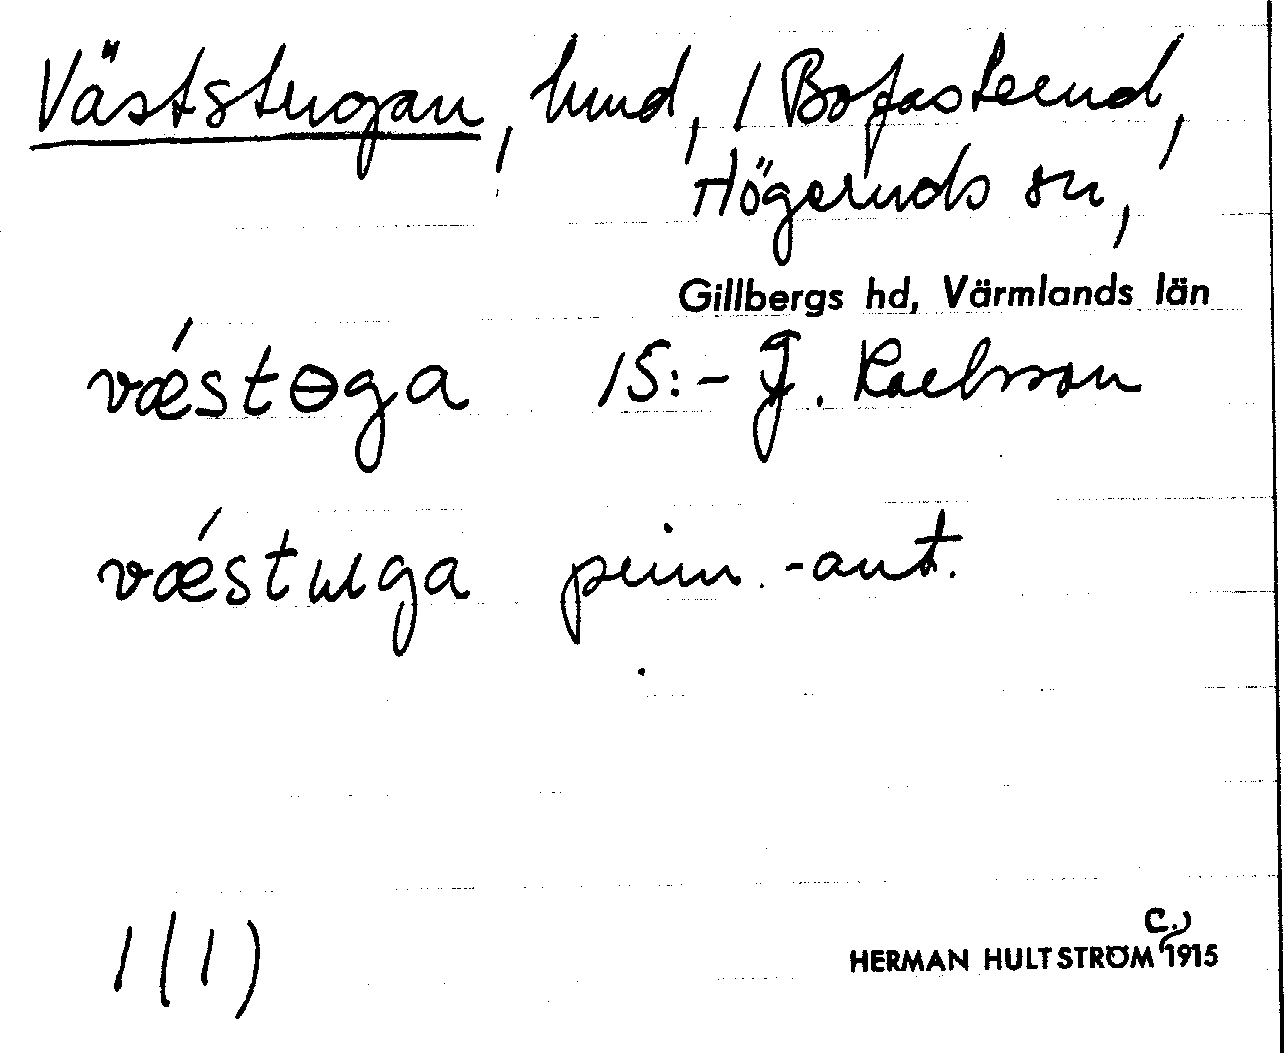 Väststugan, hmd, 1 Bofasterud,
Högeruds sn,
Gillbergs hd, Värmlands län
væ´stɵga 15:- J. Roelsson
væ´stɯga prim.-ant.
1(1)
HERMAN HULTSTRÖM C.) 1915